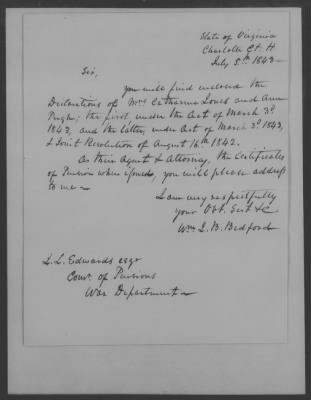 State of Virginia
Charlotte Ct. H.
July 5th 1843 -
Sir,
You will find enclosed the
Declarations of Mrs Catharine and Ann
Pugh; the first under the Act of March 3d
1843, and the latter, under Act of March 3d 1843,
& Joint Resolution of August 16th 1842.
As their Agent & Attorney, the Certificates
of Pension when issued, you will please address
to me -
I am very respectfully
your Obt. Servt &c
Wm L. B. Bedford
J. L. Edwards esqr
Comr. of Pensions
War Department -